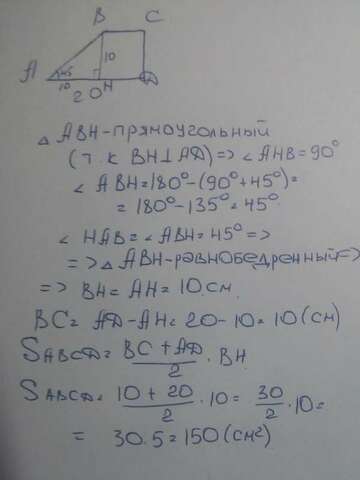 B C
A 45 10
10 H
20
△ ABH-прямоугольный
(т.к BH⊥AD)=>∠AHB=90°
∠ABH=180°-(90°+45°)=
=180°-135°=45°
∠HAB=∠ABH=45°=>
=>△ABH-равнобедренный=>
=> BH=AH=10см
BC=AD-AH=20-10=10(см)
SABCD=BC+AD/2·BH
SABCD=10+20/2·10=30/2·10=
=30·5=150(см²)